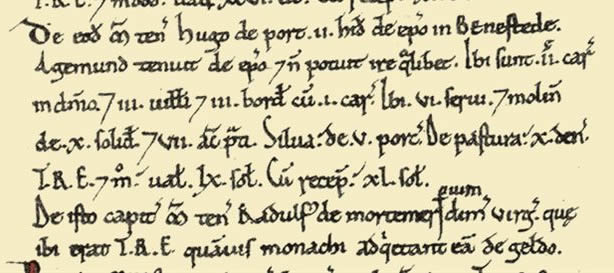 T.R.E. ⁊ modo. ual
De eod̄ M̄ ten̄ Hugo de port .ii. hid̄ de ep̄o in Benestede.
Agemund tenuit de ep̄o ⁊ n̄ potuit ire q̄libet. Ibi sunt .ii. car̄
in dn̄io. ⁊ iii. uilłi ⁊ iii. bord̄ cū .i. car̄. Ibi .vi. serui. ⁊ molin̄
de .x. solid̄. ⁊ vii. ac̄ p̄ti. Silua: de .v. porc̄. De pastura: x. den̄.
T.R.E. ⁊ m̊. ual̄. lx. sol̄. Cū recep̄. xl. sol̄.
De isto capit̄ M̄ ten̄ Radulf' de mortemer dim̄ virḡ. quę
ibi erat T.R.E. quāuis monachi adq̄etant eā de geldo.